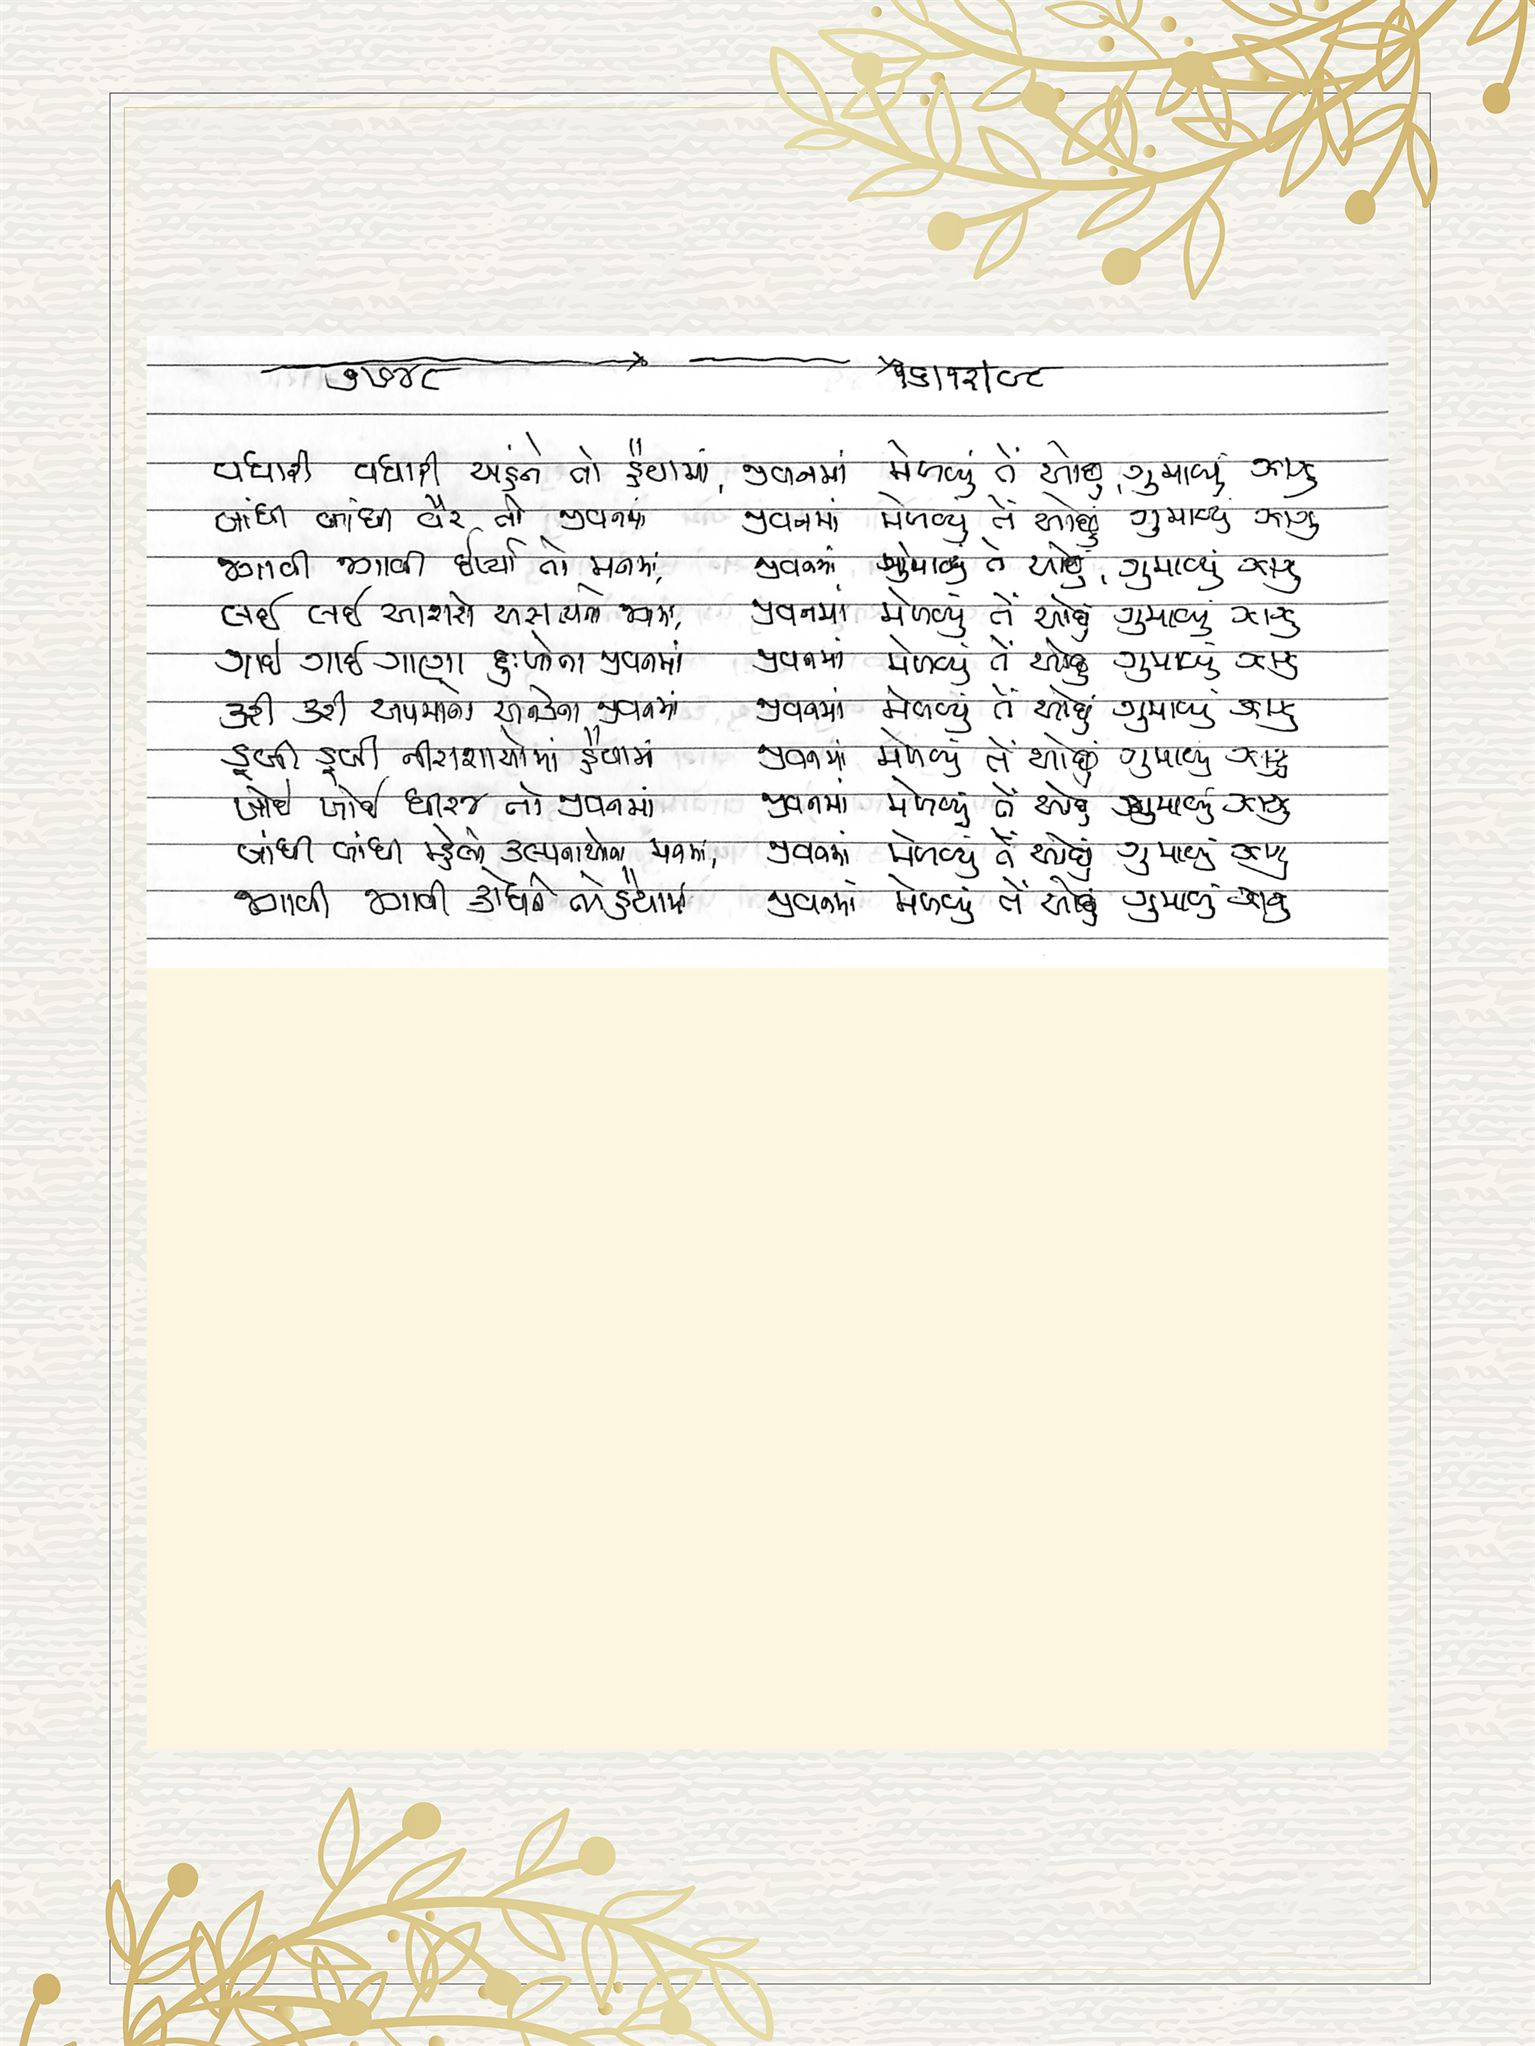 ૭૭૪૮ ૧૬|૧૨|૯૮
વધારી વધારી અહંને તો હૈયામાં, જીવનમાં મેળવ્યું તેં ઓછું, ગુમાવ્યું ઝાઝુ
બાંધી બાંધી વૈર તો જીવનમાં જીવનમાં મેળવ્યું તેં ઓછું ગુમાવ્યું ઝાઝુ
જગાવી જગાવી ઈર્ષ્યા તો મનમાં, જીવનમાં તેં ઓછું, ગુમાવ્યું ઝાઝુ
લઈ લઈ આશરો અસત્યનો જગમાં, જીવનમાં મેળવ્યું તેં ઓછું ગુમાવ્યું ઝાઝુ
ગાઈ ગાઈ ગાણા દુઃખોના જીવનમાં જીવનમાં મેળવ્યું તેં ઓછું ગુમાવ્યું ઝાઝુ
કરી કરી અપમાનો અનેકના જીવનમાં જીવનમાં મેળવ્યું તેં ઓછું ગુમાવ્યું ઝાઝુ
ડૂબી ડૂબી નીરાશાઓમાં હૈયામાં જીવનમાં મેળવ્યું તેં ઓછું ગુમાવ્યું ઝાઝુ
ખોઈ ખોઈ ધીરજ તો જીવનમાં જીવનમાં મેળવ્યું તેં ઓછું ગુમાવ્યું ઝાઝુ
બાંધી બાંધી મ્હેલો કલ્પનાઓના મનમાં, જીવનમાં મેળવ્યું તેં ઓછું ગુમાવ્યું ઝાઝુ
જગાવી જગાવી ક્રોધને તો હૈયામાં જીવનમાં મેળવ્યું તેં ઓછું ગુમાવ્યું ઝાઝુ